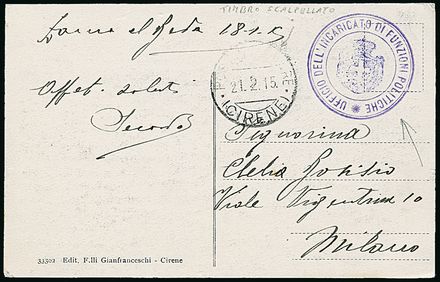 TIMBRO SCALPELLATO
18-1-15
Affet. saluti
Secondo
21.2.15
CIRENE
UFFICIO DELL'INCARICATO DI FUNZIONI POLITICHE
Signorina
Clelia
Viale Vigentina 10
Milano
33302 Edit. F.lli Gianfranceschi - Cirene